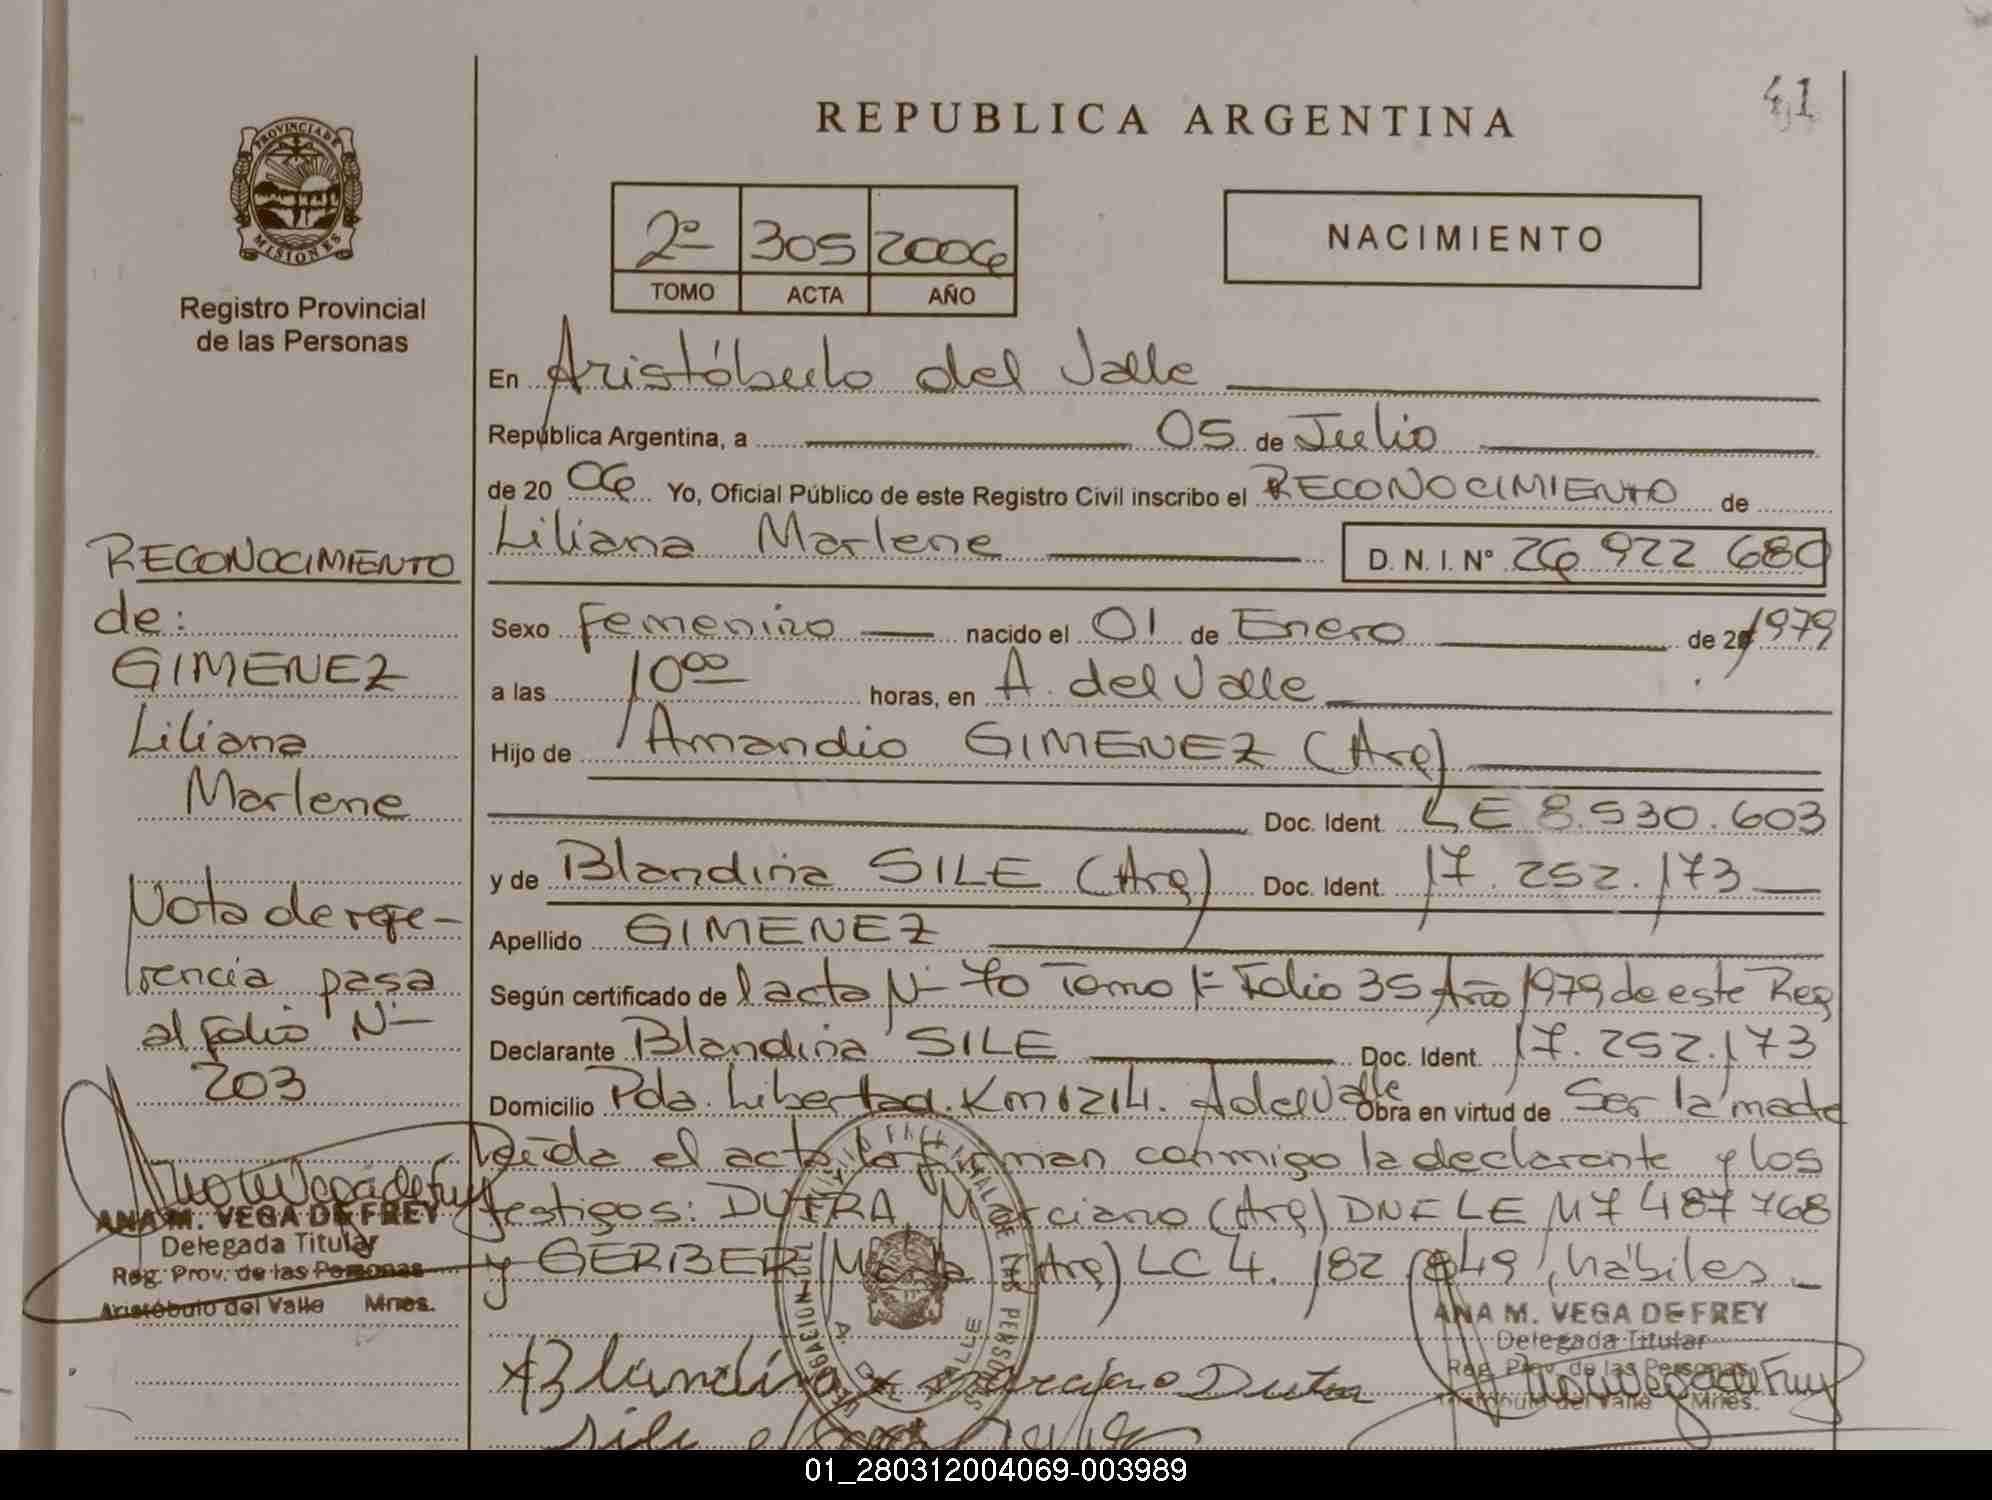 41
REPUBLICA ARGENTINA
PROVINCIA DE
MISIONES
Registro Provincial
de las Personas
2º 305 2006
TOMO ACTA AÑO
NACIMIENTO
En Aristóbulo del Valle
República Argentina, a 05 de Julio
de 20 06 Yo, Oficial Público de este Registro Civil inscribo el RECONOCIMIENTO de
Liliana Marlene D. N. I. Nº 26 922 680
Sexo Femenino nacido el 01 de Enero de 1979
a las 10 00 horas, en A. del Valle
Hijo de Amandio GIMENEZ (Arg)
Doc. Ident. LE 8.530.603
y de Blandina SILE (Arg) Doc. Ident. 17.252.173
Apellido GIMENEZ
Según certificado de acta Nº 70 Tomo 1º Folio 35 Año 1979 de este Reg
Declarante Blandina SILE Doc. Ident. 17.252.173
Domicilio Pda. Libertad. Km 1214. A del Valle Obra en virtud de Ser la madre
Leída el acta la firman conmigo la declarante y los
testigos: DUTRA, Marciano (Arg) DNE LE M7 487 768
y GERBER (Arg) LC 4.182.849, hábiles
RECONOCIMIENTO
de:
GIMENEZ
Liliana
Marlene
Nota de refe-
rencia pasa
al folio Nº
203
ANA M. VEGA DE FREY
Delegada Titular
Reg. Prov. de las Personas
Aristóbulo del Valle Mnes.
ANA M. VEGA DE FREY
Delegada Titular
Reg. Prov. de las Personas
Aristóbulo del Valle Mnes.
Blandina Marciano Dutra
Sile
01_280312004069-003989